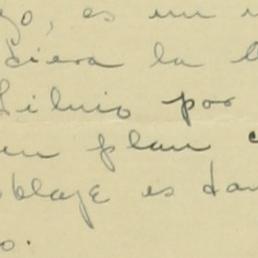 go, es un
diera la
Silvio por
un plan
blaje es tan
o.